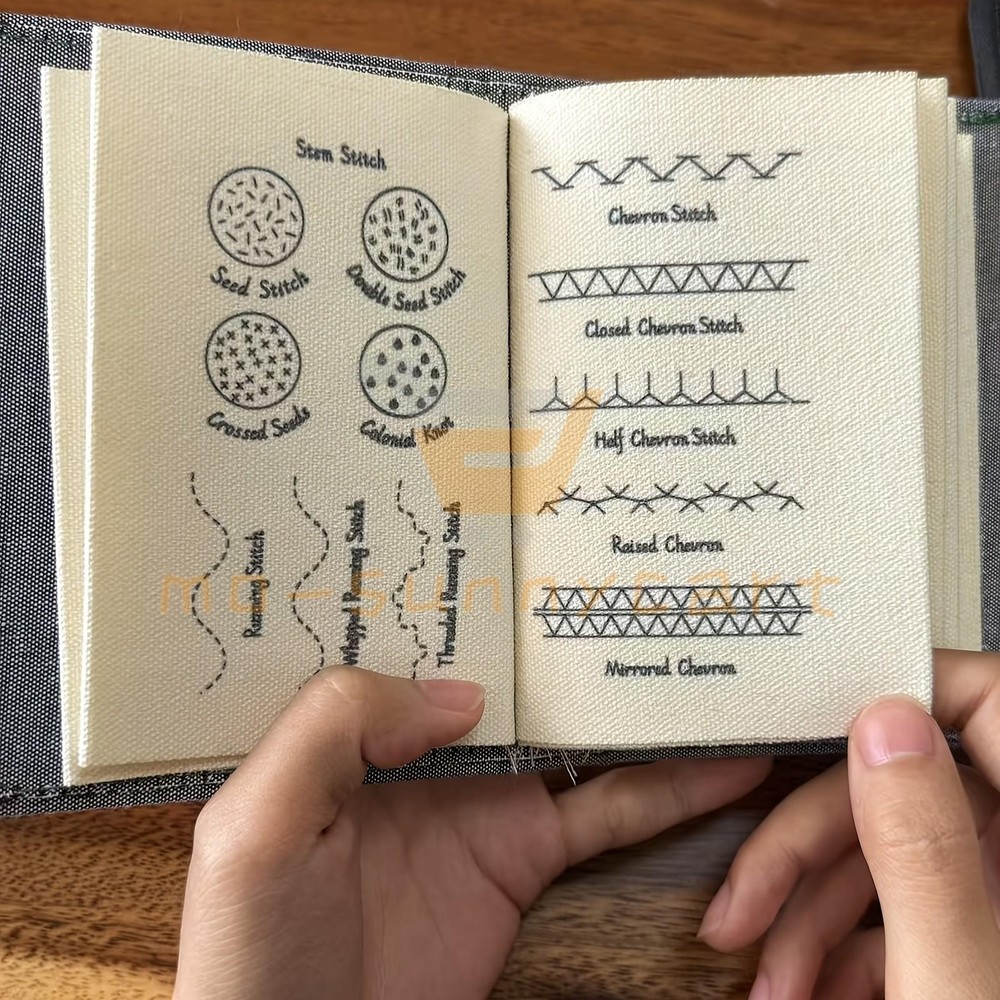 Stem Stitch
Seed Stitch
Double Seed Stitch
Crossed Seeds
Colonial Knot
Running Stitch
Whipped Running Stitch
Threaded Running Stitch
Chevron Stitch
Closed Chevron Stitch
Half Chevron Stitch
Raised Chevron
Mirrored Chevron
mo-sunnycart